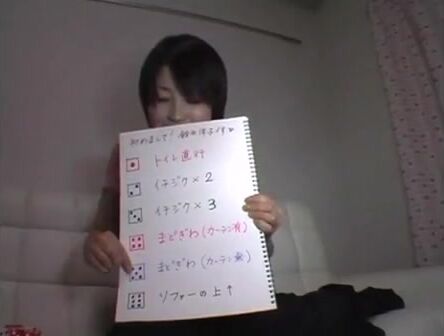 初めまして!鈴木洋子です
トイレ直行
イチジク×2
イチジク×3
まどぎわ(カーテン有)
まどぎわ(カーテン無)
ソファーの上↑